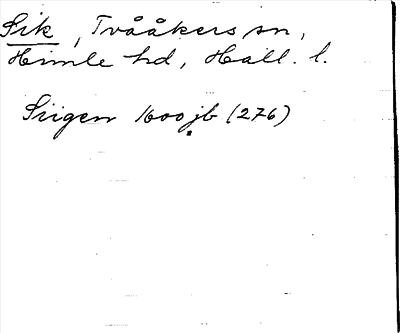 Sik, Tvååkers sn,
Himle hd, Hall. l.
Siigen 1600 jb (276)